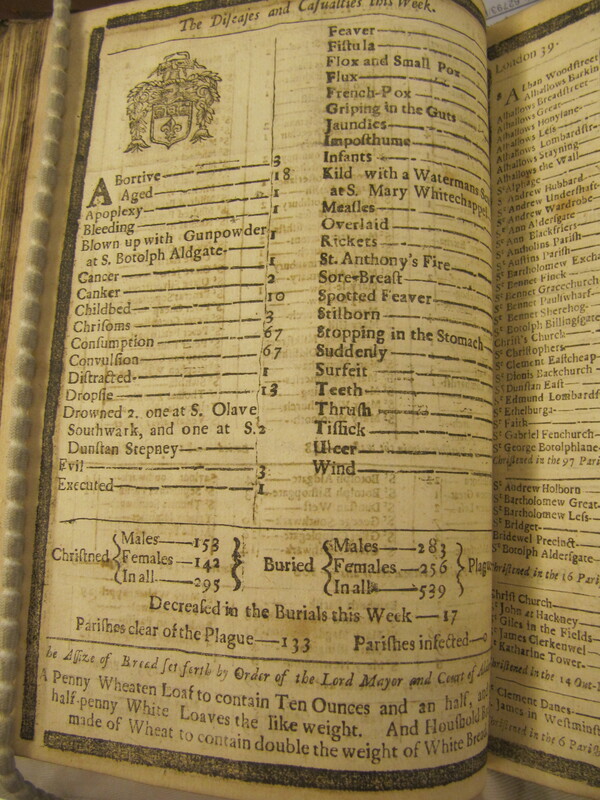 The Diseases and Casualties this Week.
Abortive 3
Aged 18
Apoplexy 1
Bleeding 1
Blown up with Gunpowder
at S. Botolph Aldgate 1
Cancer 1
Canker 2
Childbed 10
Chrisoms 3
Consumption 67
Convulsion 67
Distracted 1
Dropsie 13
Drowned 2. one at S. Olave
Southwark, and one at S. 2
Dunstan Stepney
Evil 3
Executed 1
Feaver
Fistula
Flox and Small Pox
Flux
French-Pox
Griping in the Guts
Jaundies
Imposthume
Infants
Kild with a Watermans
at S. Mary Whitechappel
Measles
Overlaid
Rickets
St. Anthony's Fire
Sore-Breast
Spotted Feaver
Stilborn
Stopping in the Stomach
Suddenly
Surfeit
Teeth
Thrush
Tissick
Ulcer
Wind
Christned Males 153 Females 142 In all 295
Buried Males 283 Females 256 In all 539
Plag
Decreased in the Burials this Week 17
Parishes clear of the Plague 133 Parishes infected
he Assize of Bread set forth by Order of the Lord Mayor and Court of
A Penny Wheaten Loaf to contain Ten Ounces and an half, and
half-penny White Loaves the like weight. And Houshold
made of Wheat to contain double the weight of White Bread
London 39
Alban Woodstreet
Alhallows Barkin
Alhallows Breadstreet
Alhallows Great
Alhallows Honylane
Alhallows Less
Alhallows Lombardstr
Alhallows Stayning
Alhallows the Wall
St Alphage
St Andrew Hubbard
St Andrew Undershaft
St Andrew Wardrobe
St Ann Aldersgate
St Ann Blackfriers
St Antholins Parish
St Austins Parish
St Bartholomew Excha
St Bennet Finck
St Bennet Gracechurch
St Bennet Paulswharf
St Bennet Sherehog
St Botolph Billingsgate
Christ's Church
St Christophers
St Clement Eastcheap
St Dionis Backchurch
St Dunstan East
St Edmund Lombardst
St Ethelburga
St Faith
St Gabriel Fenchurch
St George Botolphlane
Christned in the 97 Pari
St Andrew Holborn
St Bartholomew Great
St Bartholomew Less
St Bridget
Bridewel Precinct
St Botolph Aldersgate
Christned in the 16 Pari
Christ Church
St John at Hackney
St Giles in the Fields
St James Clerkenwel
St Katharine Tower
Christned in the 14 Out-
St Clement Danes
St James in Westminst
Christned in the 6 Pari